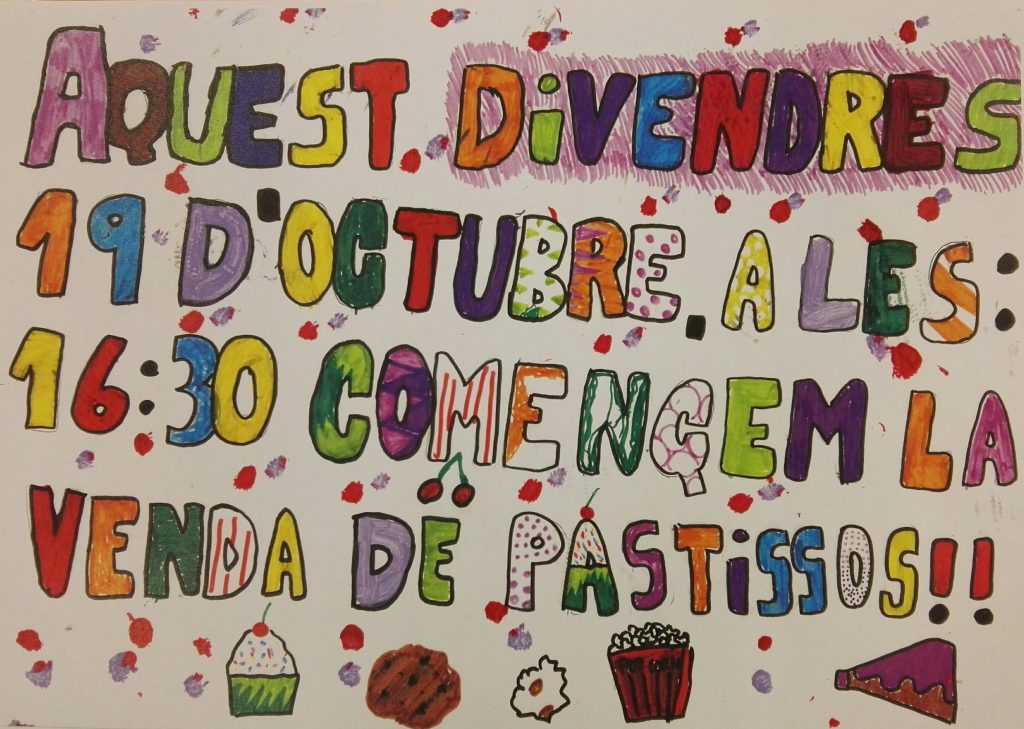 AQUEST DiVENDRES
19 D'OCTUBRE. A LES:
16:30 COMENÇEM LA
VENDA DE PASTiSSOS!!
POP CORN